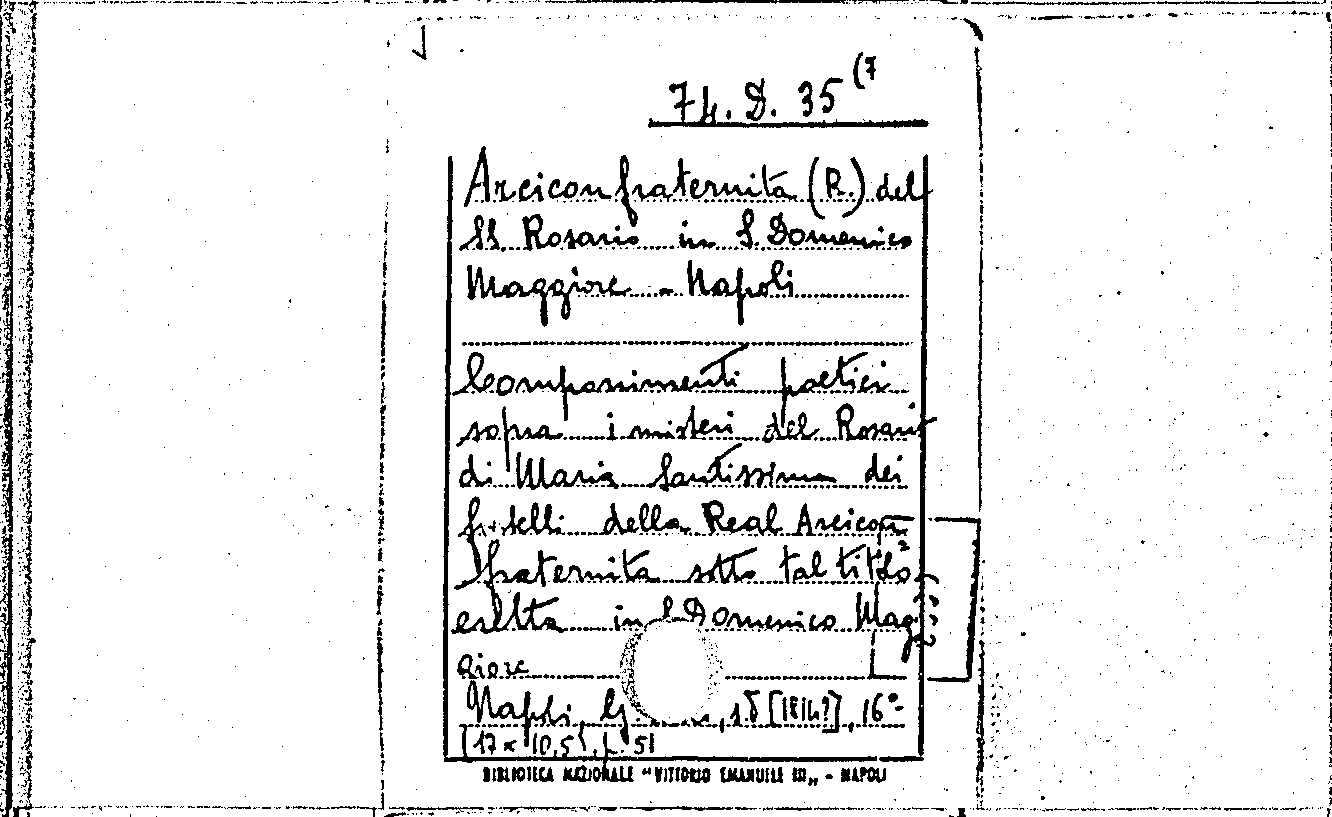 74. D. 35 (7
Arciconfraternita (R.) del
SS. Rosario in S. Domenico
Maggiore - Napoli
Componimenti poetici
sopra i misteri del Rosario
di Maria Santissima dei
fratelli della Real Arcicon
fraternita sotto tal titolo
eretta in S. Domenico Mag
giore
Napoli, [1814?], 16°-
(17 x 10,5), p. 51
BIBLIOTECA NAZIONALE "VITTORIO EMANUELE III„ - NAPOLI